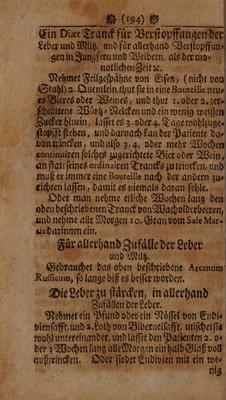 (194)
Ein Diæt Tranck für Verstopffungen der
Leber und Miltz, und für allerhand Verstopffun-
gen in Jungfern und Weibern, als der mo-
natlichen Zeit ꝛc.
Nehmet Feilgespähne von Eisen, (nicht von
Stahl) 2. Quentlein, thut sie in eine Bouteille neu-
es Bieres oder Weines, und thut 1. oder 2. zer-
schnittene Würtz-Nelcken und ein wenig weissen
Zucker hinein, lasset es 3. oder 4. Tage wohl zuge-
stopfft stehen, und darnach kan der Patiente da-
von trincken, und also 3. 4. oder mehr Wochen
continuiren solches zugerichtete Bier oder Wein,
an statt seines ordinairen Trancks zu trincken, und
muß er immer eine Bouteille nach der andern zu-
richten lassen, damit es niemals daran fehle.
Oder man nehme etliche Wochen lang den
oben beschriebenen Tranck von Wacholderbeeren,
und nehme alle Morgen 10. Gran vom Sale Mar-
tis darinnen ein.
Für allerhand Zufälle der Leber
und Miltz.
Gebrauchet das oben beschriebene Arcanum
Russicum, so lange biß es besser worden.
Die Leber zu stärcken, in allerhand
Zufällen der Leber.
Nehmet ein Pfund oder ein Nössel von Endi-
viensafft, und 2. Loth von Bibernelsafft, mischet sie
wohl untereinander, und lasset den Patienten 2. o-
der 3 Wochen lang alle Morgen ein halb Glaß voll
außtrincken. Oder siedet Endivien mit ein we-
nig